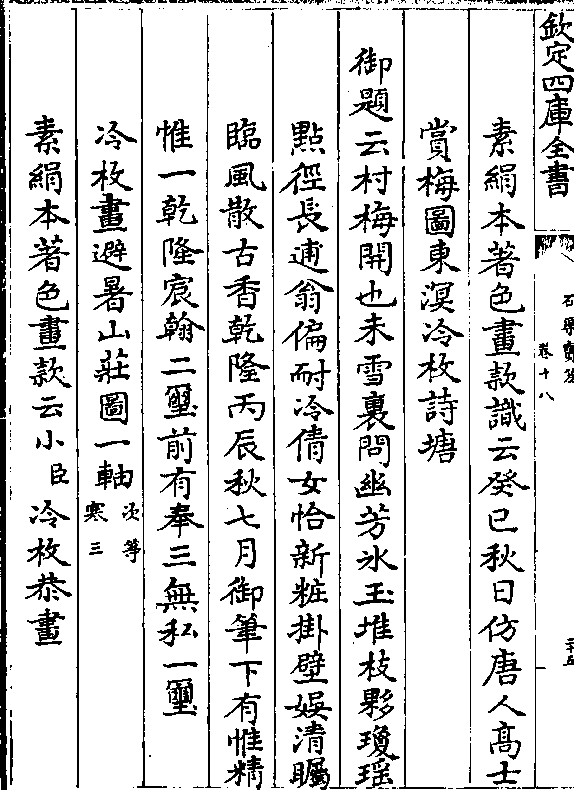 欽定四庫全書
石渠寶笈
卷十八
二十五
素絹本著色畫款識云癸巳秋日仿唐人高士
賞梅圖東溟冷枚詩塘
御題云村梅開也未雪裏問幽芳氷玉堆枝夥瓊瑶
點徑長逋翁偏耐冷倩女恰新粧掛壁娛清矚
臨風散古香乾隆丙辰秋七月御筆下有惟精
惟一乾隆宸翰二璽前有奉三無私一璽
冷枚畫避暑山莊圖一軸次等
寒三
素絹本著色畫款云小臣冷枚恭畫